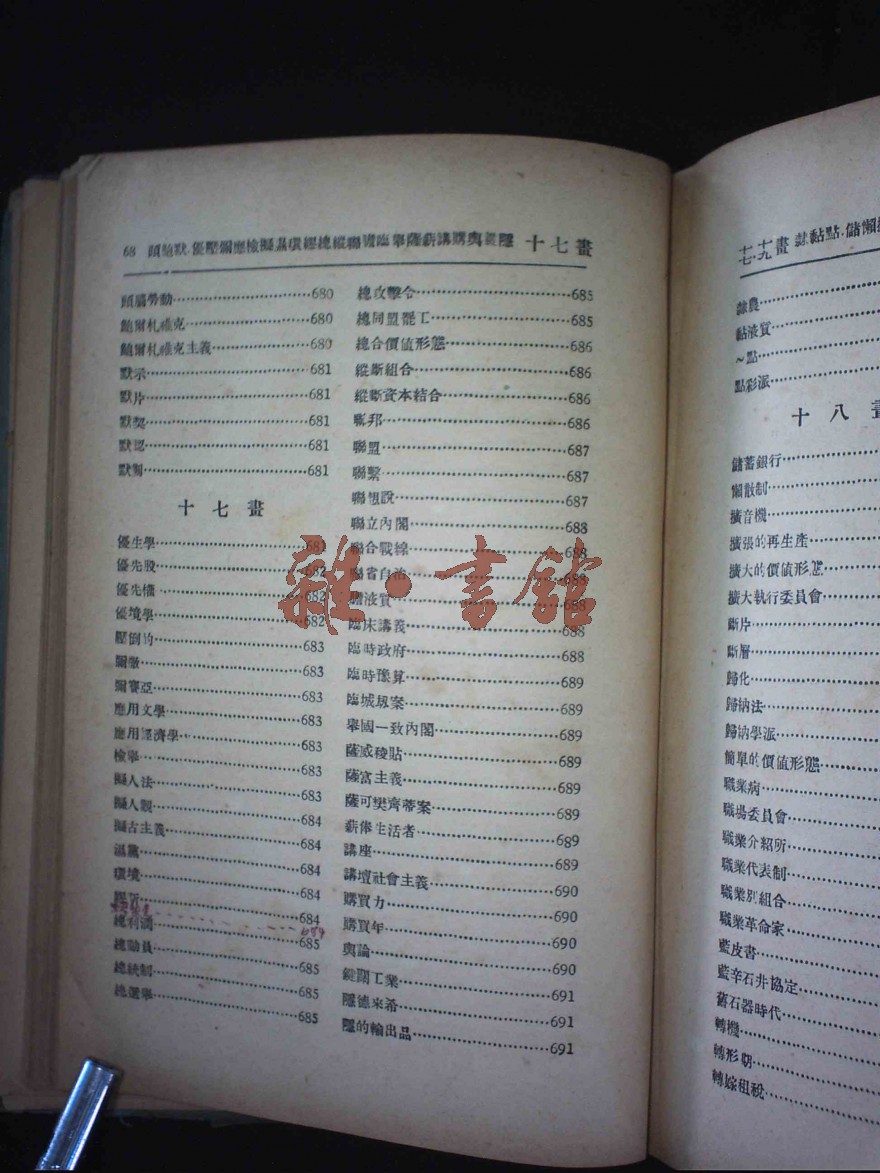 68 十七畫
頭腦勞動 680
鮑爾札維克 680
鮑爾札維克主義 680
默示 681
默片 681
默契 681
默認 681
默劇 681
十七畫
優生學 681
優先股 682
優先權 682
優境學 682
壓倒的 683
彌撒 683
彌賽亞 683
應用文學 683
應用經濟學 683
檢舉 683
擬人法 683
擬人觀 684
擬古主義 684
濫黨 684
環境 684
684
總利潤 685
總動員 685
總統制 685
總選舉 685
總攻擊令 685
總同盟罷工 685
總合價值形態 686
縱斷組合 686
縱斷資本結合 686
聯邦 686
聯盟 687
聯繫 687
聯想說 687
聯立內閣 688
聯合戰線 688
聯省自治 688
膽液質 688
臨床講義 688
臨時政府 688
臨時豫算 689
臨城劫案 689
舉國一致內閣 689
薩威稜貼 689
薩富主義 689
薩可樊齊蒂案 689
薪俸生活者 689
講座 689
講壇社會主義 690
購買力 690
購買年 690
輿論 690
鍵關工業 691
隱德來希 691
隱的輸出品 691
雜·書館
十七-十九畫
隷農
黏液質
～點
點彩派
十八畫
儲蓄銀行
懶散制
擴音機
擴張的再生產
擴大的價值形態
擴大執行委員會
斷片
斷層
歸化
歸納法
歸納學派
簡單的價值形態
職業病
職場委員會
職業介紹所
職業代表制
職業別組合
職業革命家
藍皮書
藍辛石井協定
舊石器時代
轉機
轉形期
轉嫁租稅